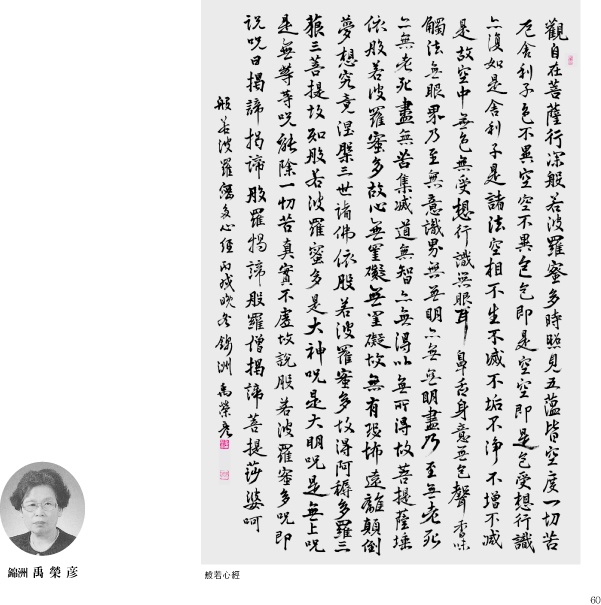 觀自在菩薩行深般若波羅蜜多時照見五蘊皆空度一切苦
厄舍利子色不異空空不異色色即是空空即是色受想行識
亦復如是舍利子是諸法空相不生不滅不垢不淨不增不減
是故空中無色無受想行識無眼耳鼻舌身意無色聲香味
觸法無眼界乃至無意識界無無明亦無無明盡乃至無老死
亦無老死盡無苦集滅道無智亦無得以無所得故菩提薩埵
依般若波羅蜜多故心無罣礙無罣礙故無有恐怖遠離顛倒
夢想究竟涅槃三世諸佛依般若波羅蜜多故得阿耨多羅三
藐三菩提故知般若波羅蜜多是大神呪是大明呪是無上呪
是無等等呪能除一切苦真實不虛故說般若波羅蜜多呪即
說呪曰揭諦揭諦般羅揭諦般羅僧揭諦菩提莎婆呵
般若波羅蜜多心經 丙戌晚冬 錦洲 禹榮彦
錦洲 禹榮彦
般若心經
60